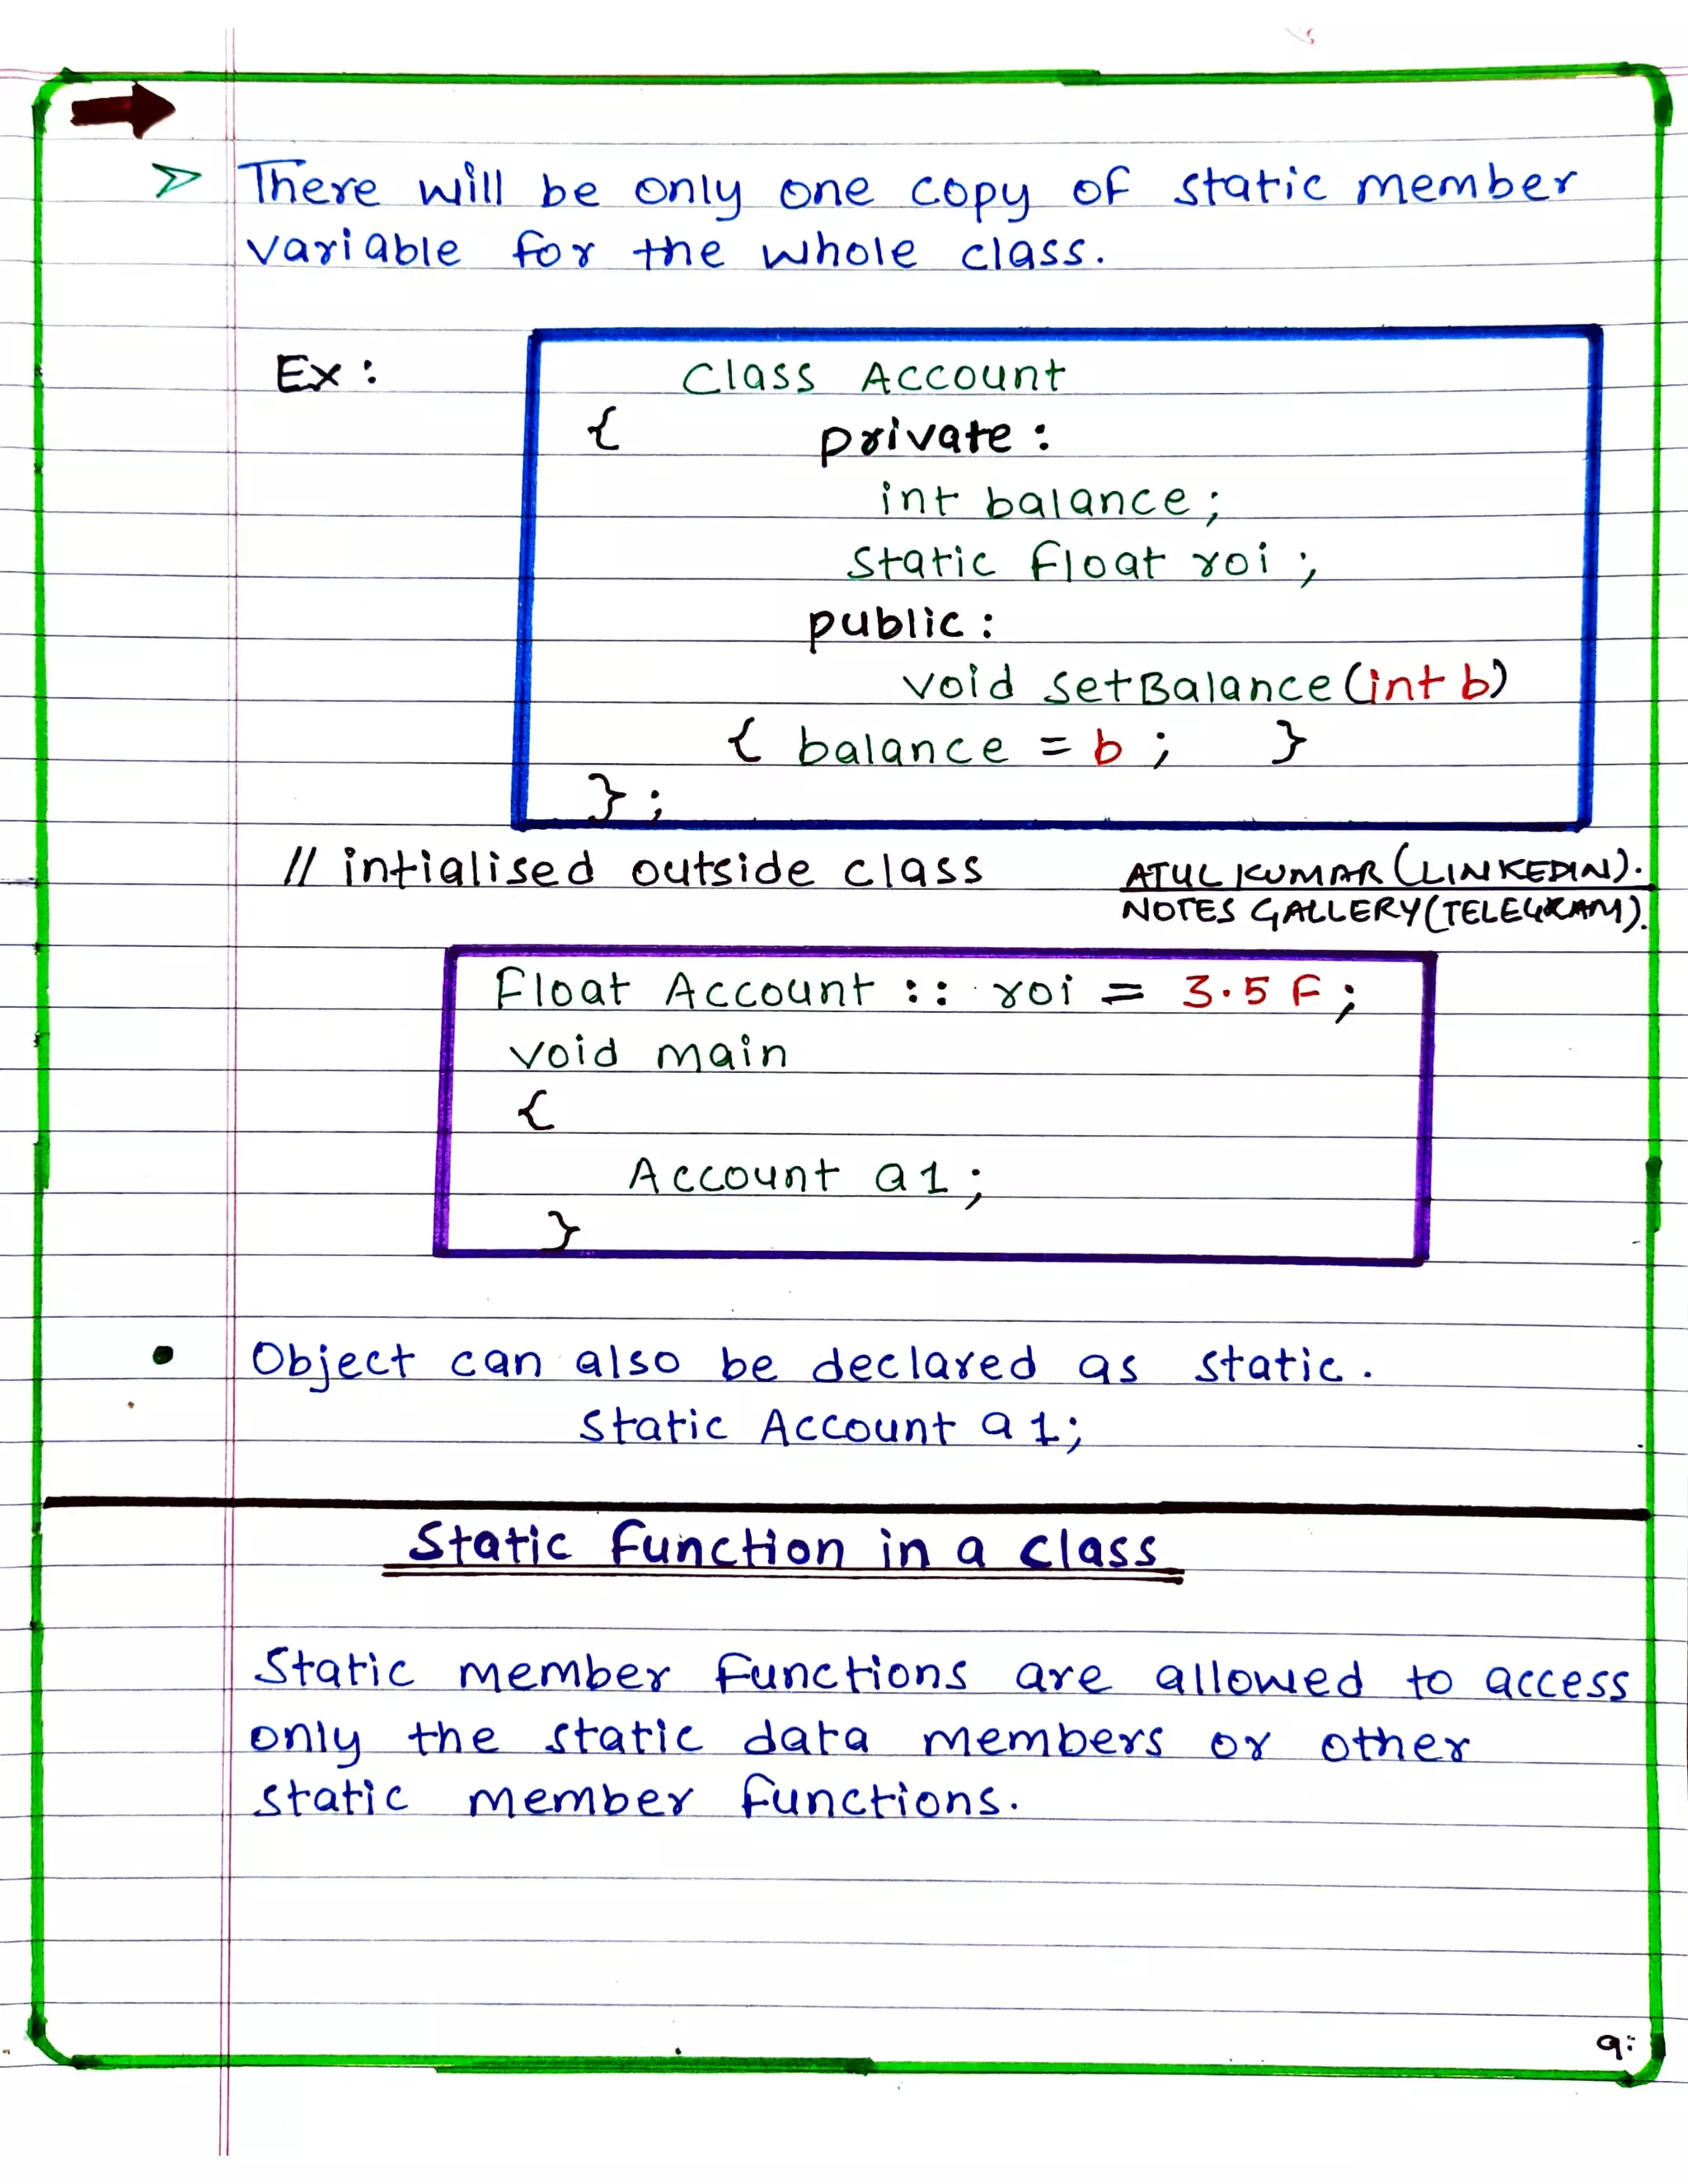 There will be only one copy of static member
variable for the whole class.
Ex :
Class Account
{ private :
int balance ;
Static Float roi ;
public :
void setBalance (int b)
{ balance = b ; }
} ;
// intialised outside class
ATUL KUMAR (LINKEDIN).
NOTES GALLERY (TELEGRAM).
Float Account :: roi = 3.5 F ;
void main
{
Account a1 ;
}
• Object can also be declared as static.
Static Account a1;
Static Function in a class
Static member Functions are allowed to access
only the static data members or other
static member functions.
9: